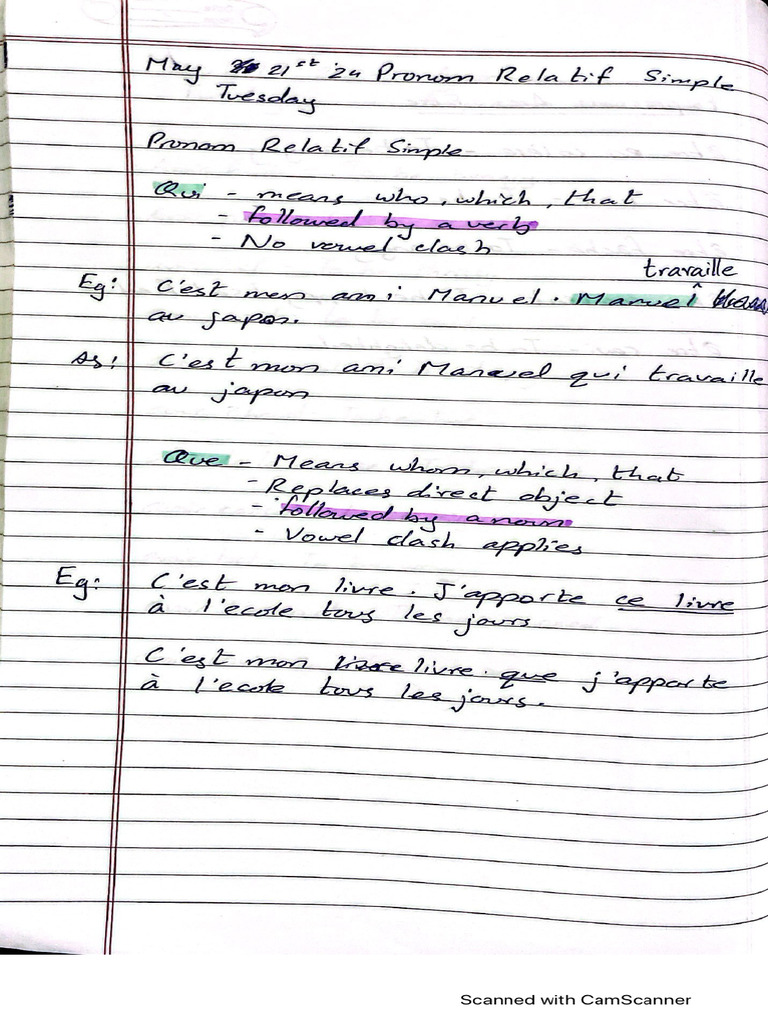 May 21st '24 Pronom Relatif Simple
Tuesday
Pronom Relatif Simple
Qui - means who, which, that
- followed by a verb
- No vowel clash
travaille
Eg: C'est mon ami Manuel. Manuel
au japon.
As: C'est mon ami Manuel qui travaille
au japon
Que - Means whom, which, that
- Replaces direct object
- followed by a noun
- Vowel clash applies
Eg: C'est mon livre. J'apporte ce livre
à l'ecole tous les jours
C'est mon livre. que j'apporte
à l'ecole tous les jours.
Scanned with CamScanner